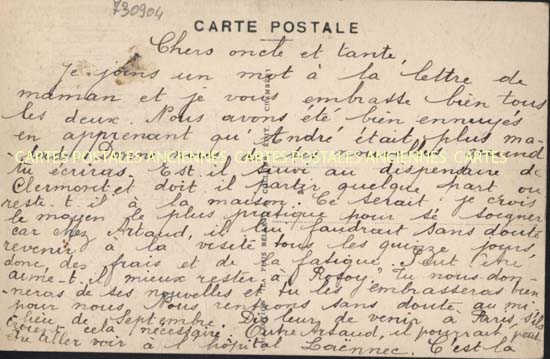 730904
CARTE POSTALE
Chers oncle et tante,
Je joins un mot à la lettre de
maman et je vous embrasse bien tous
les deux. Nous avons été bien ennuyés
en apprenant qu'André était plus ma-
CARTES POSTALES ANCIENNES CARTES POSTALES ANCIENNES CARTES
quand
tu écriras. Est-il suivi au dispensaire de
Clermont et doit-il partir quelque part ou
reste-t-il à la maison. Ce serait je crois
le moyen le plus pratique pour se soigner
car chez Artaud, il lui faudrait sans doute
revenir à la visite tous les quinze jours,
donc des frais et de la fatigue. Peut-être
aime-t-il mieux rester à Rosoy. Tu nous don-
neras de ses nouvelles et tu les embrasseras bien
pour nous. Nous rentrons sans doute au mi-
lieu de Septembre. Dis leur de venir à Paris s'ils
croient cela nécessaire. Outre Artaud, il pourrait peut-
être aller voir à l'hôpital Laënnec. C'est là